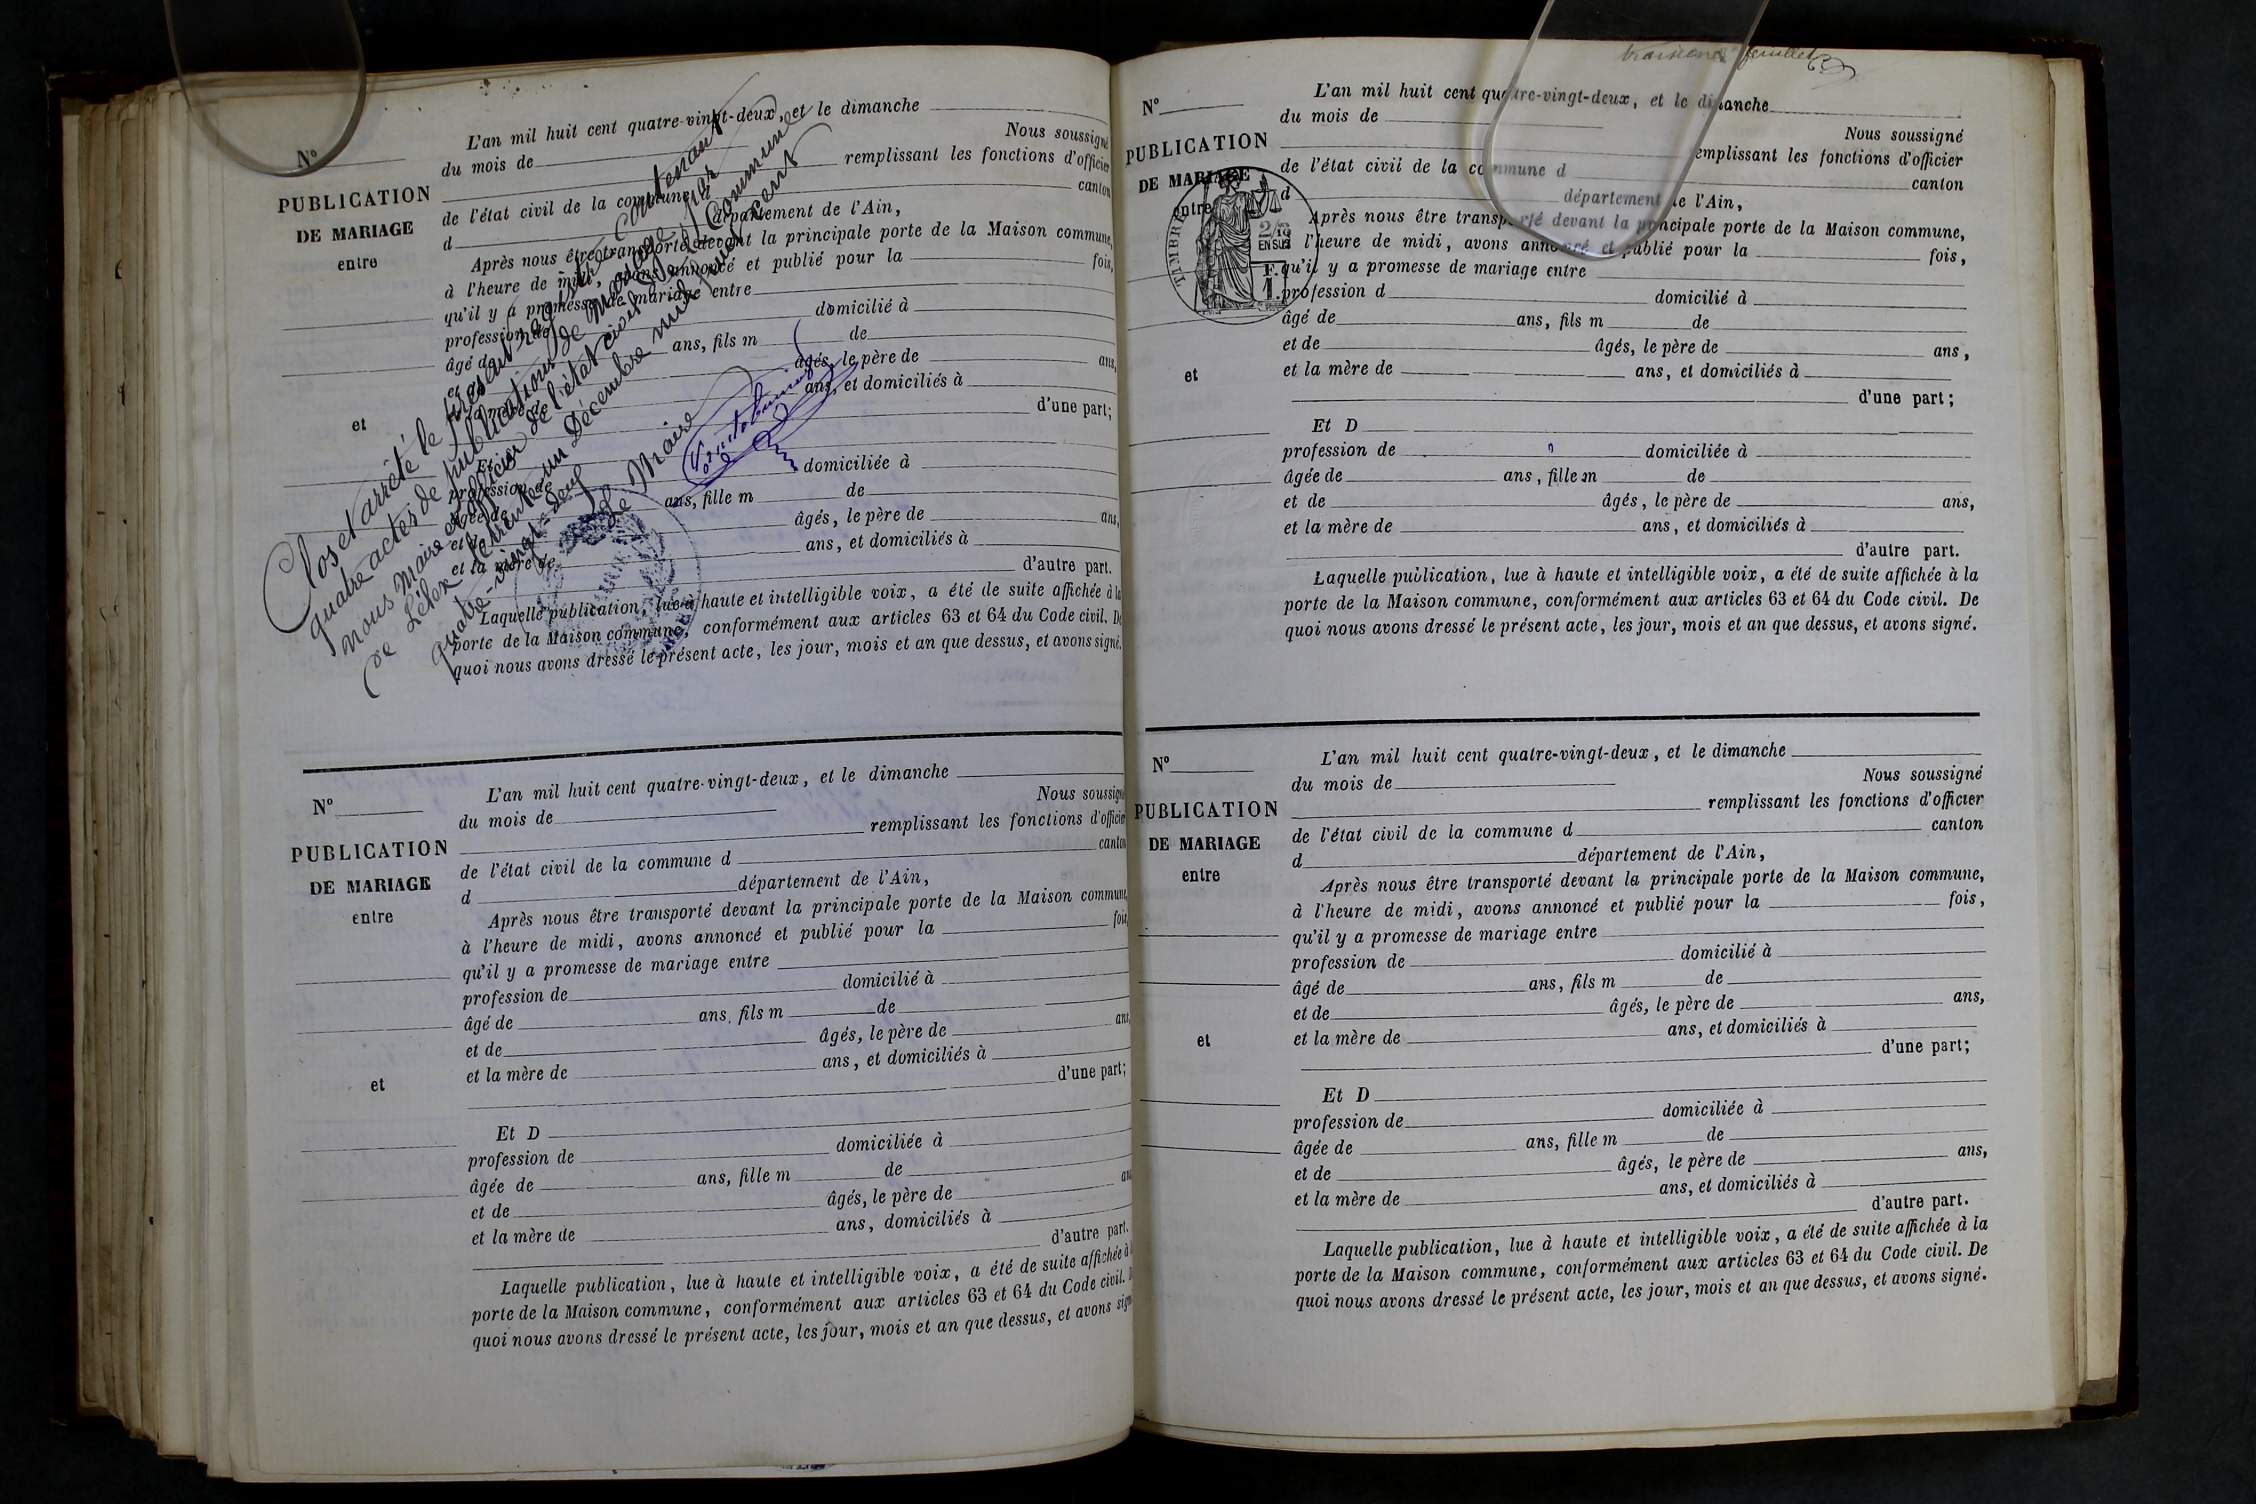 N°
PUBLICATION
DE MARIAGE
entre
et
L'an mil huit cent quatre-vingt-deux, et le dimanche
du mois de
Nous soussigné
remplissant les fonctions d'officier
de l'état civil de la commune d
canton
d
département de l'Ain,
Après nous être transporté devant la principale porte de la Maison commune,
à l'heure de midi, avons annoncé et publié pour la fois,
qu'il y a promesse de mariage entre
profession de domicilié à
âgé de ans, fils m de
et de âgés, le père de ans,
et la mère de ans, et domiciliés à
d'une part;
Et
profession de domiciliée à
âgée de ans, fille m de
et de âgés, le père de ans,
et la mère de ans, et domiciliés à
d'autre part.
Laquelle publication, lue à haute et intelligible voix, a été de suite affichée à la
porte de la Maison commune, conformément aux articles 63 et 64 du Code civil. De
quoi nous avons dressé le présent acte, les jour, mois et an que dessus, et avons signé.
Clos et arrêté le présent registre contenant
quatre actes de publications de Mariage par
nous Maire et officier de l'état civil de la Commune
de Lélex le trente un Décembre mil huit cent
quatre-vingt-deux
Le Maire
N°
PUBLICATION
DE MARIAGE
entre
et
L'an mil huit cent quatre-vingt-deux, et le dimanche
du mois de
Nous soussigné
remplissant les fonctions d'officier
de l'état civil de la commune d
canton
d département de l'Ain,
Après nous être transporté devant la principale porte de la Maison commune,
à l'heure de midi, avons annoncé et publié pour la fois,
qu'il y a promesse de mariage entre
profession de domicilié à
âgé de ans, fils m de
et de âgés, le père de ans,
et la mère de ans, et domiciliés à
d'une part;
Et D
profession de domiciliée à
âgée de ans, fille m de
et de âgés, le père de ans
et la mère de ans, domiciliés à
d'autre part.
Laquelle publication, lue à haute et intelligible voix, a été de suite affichée à l
porte de la Maison commune, conformément aux articles 63 et 64 du Code civil. D
quoi nous avons dressé le présent acte, les jour, mois et an que dessus, et avons signé
troisième feuillet
N°
PUBLICATION
DE MARIAGE
entre
TIMBRE
2/10
EN SUS
F.
1.
et
L'an mil huit cent quatre-vingt-deux, et le dimanche
du mois de
Nous soussigné
remplissant les fonctions d'officier
de l'état civil de la commune d
canton
d département de l'Ain,
Après nous être transporté devant la principale porte de la Maison commune,
à l'heure de midi, avons annoncé et publié pour la fois,
qu'il y a promesse de mariage entre
profession d domicilié à
âgé de ans, fils m de
et de âgés, le père de ans,
et la mère de ans, et domiciliés à
d'une part;
Et D
profession de domiciliée à
âgée de ans, fille m de
et de âgés, le père de ans,
et la mère de ans, et domiciliés à
d'autre part.
Laquelle publication, lue à haute et intelligible voix, a été de suite affichée à la
porte de la Maison commune, conformément aux articles 63 et 64 du Code civil. De
quoi nous avons dressé le présent acte, les jour, mois et an que dessus, et avons signé.
N°
PUBLICATION
DE MARIAGE
entre
et
L'an mil huit cent quatre-vingt-deux, et le dimanche
du mois de
Nous soussigné
remplissant les fonctions d'officier
de l'état civil de la commune d
canton
d département de l'Ain,
Après nous être transporté devant la principale porte de la Maison commune,
à l'heure de midi, avons annoncé et publié pour la fois,
qu'il y a promesse de mariage entre
profession de domicilié à
âgé de ans, fils m de
et de âgés, le père de ans,
et la mère de ans, et domiciliés à
d'une part;
Et D
profession de domiciliée à
âgée de ans, fille m de
et de âgés, le père de ans,
et la mère de ans, et domiciliés à
d'autre part.
Laquelle publication, lue à haute et intelligible voix, a été de suite affichée à la
porte de la Maison commune, conformément aux articles 63 et 64 du Code civil. De
quoi nous avons dressé le présent acte, les jour, mois et an que dessus, et avons signé.